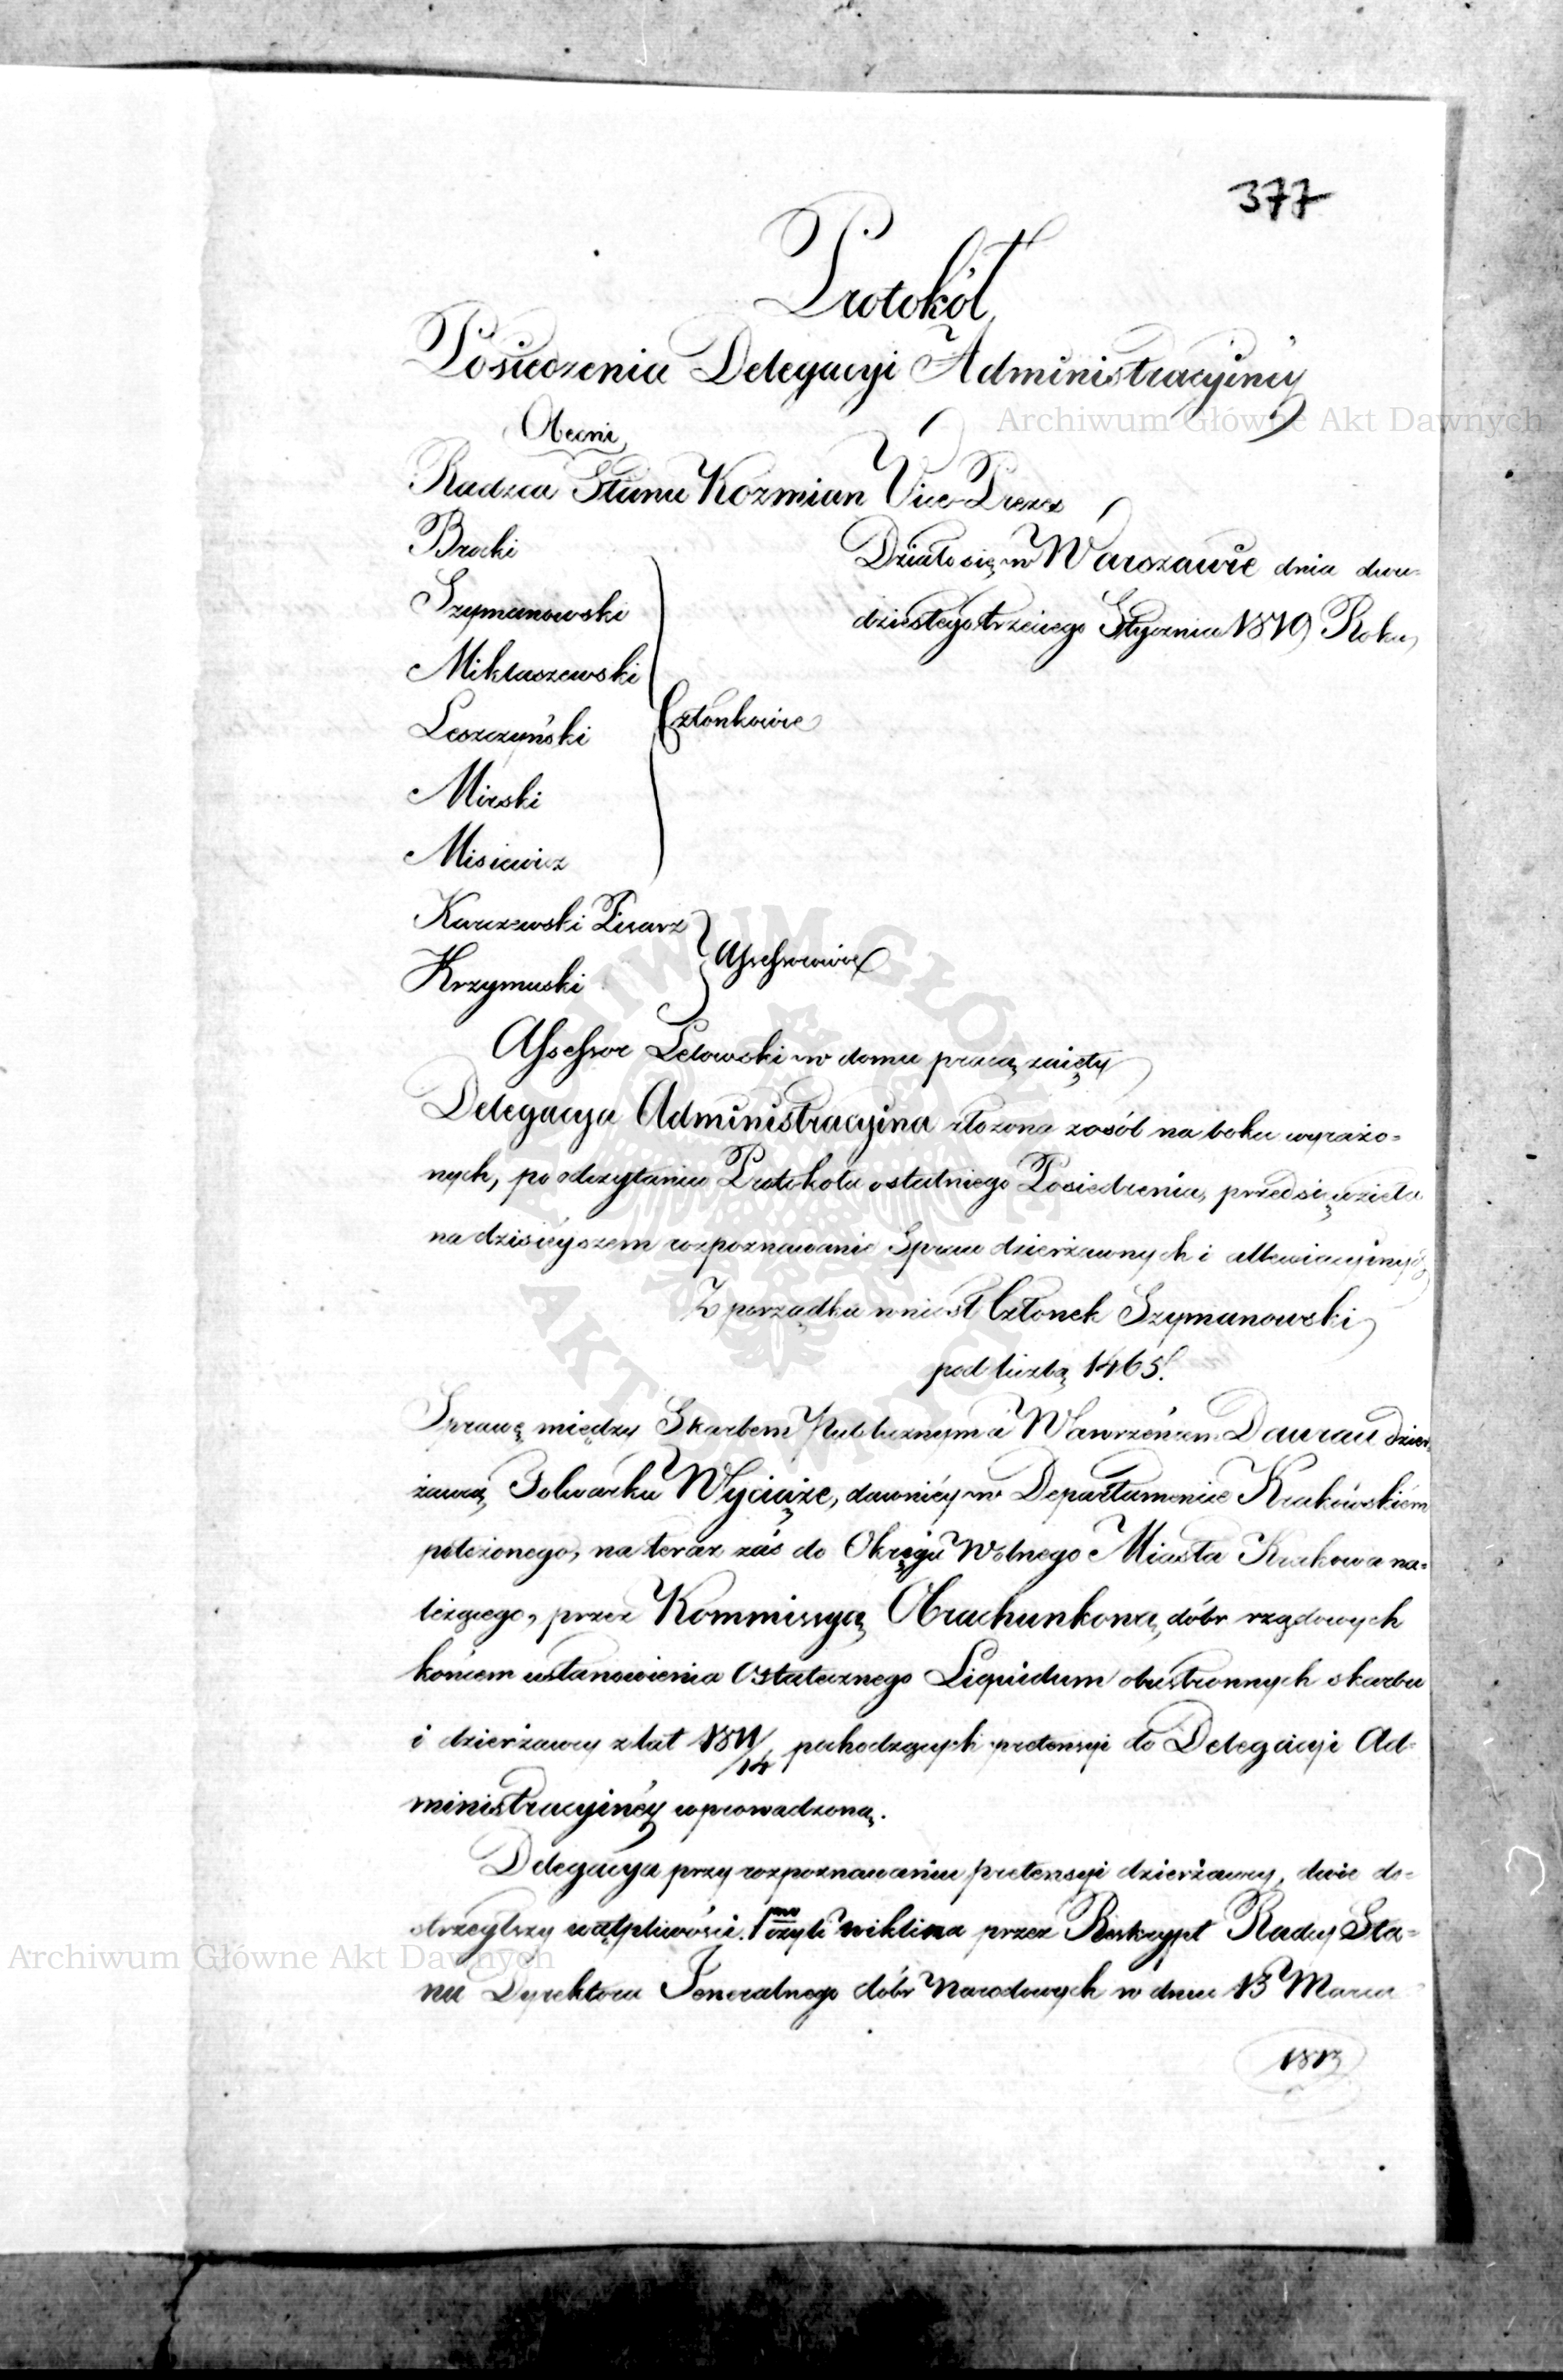 377
Protokół
Posiedzenia Delegacyi Administracyinéy
Obecni
Radzca Stanu Koźmian Vice-Prezes
Brocki
Szymanowski
Mikłaszewski
Leszczyński
Mirski
Misiewicz
Członkowie
Działo się w Warszawie dnia dwu-
dziestego trzeciego Stycznia 1819 Roku
Karczewski Pisarz
Krzymuski
Assessorowie
Assessor Letowski w domu pracą zaięty
Delegacya Administracyina złożona z osób na boku wyrażo=
nych, po odczytaniu Protokołu ostatniego Posiedzenia, przedsięwzięła
na dzisieyszem rozpoznawanie Spraw dzierżawnych i allewiacyinych
Z porządku wniósł Członek Szymanowski
pod liczbą 1465.
Sprawę między Skarbem Publicznym a Wawrzeńcem Daurau dzier
żawcą Folwarku Wyciąże, dawniéy w Departamencie Krakowskiém
położonego, na teraz zaś do Okręgu Wolnego Miasta Krakowa na=
leżącego, przez Kommissyą Obrachunkową dóbr rządowych
końcem ustanowienia Ostatecznego Liquidum obustronnych skarbu
i dzierżawcy z lat 1811/14 pochodzących pretensyi do Delegacyi Ad=
ministracyinéy wprowadzoną.
Delegacya przy rozpoznawaniu pretensyi dzierżawcy, dwie do=
strzegłszy wątpliwości. 1mo czyli wiklina przez Reskrypt Rady Sta=
nu Dyrektora Jeneralnego dóbr Narodowych w dniu 13 Marca
1813
Archiwum Główne Akt Dawnych
ARCHIWUM GŁÓWNE AKT DAWNYCH
Archiwum Główne Akt Dawnych